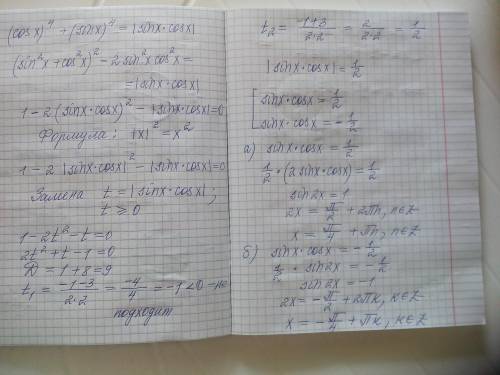 (cosx)⁴ + (sinx)⁴ = |sinx·cosx|
(sin²x + cos²x)² - 2sin²x cos²x =
= |sinx·cosx|
1 - 2(sinx·cosx)² - |sinx·cosx| = 0
Формула: |x|² = x²
1 - 2|sinx·cosx|² - |sinx·cosx| = 0
Замена t = |sinx·cosx|;
t ⩾ 0
1 - 2t² - t = 0
2t² + t - 1 = 0
D = 1 + 8 = 9
t₁ = (-1-3)/(2·2) = -4/4 = -1 < 0 - не
подходит
t₂ = (-1+3)/(2·2) = 2/(2·2) = 1/2
|sinx·cosx| = 1/2
[ sinx·cosx = 1/2
sinx·cosx = -1/2
а) sinx·cosx = 1/2
1/2·(2sinx·cosx) = 1/2
sin2x = 1
2x = π/2 + 2πn, n∈Z
x = π/4 + πn, n∈Z
б) sinx·cosx = -1/2
1/2·sin2x = -1/2
sin2x = -1
2x = -π/2 + 2πk, k∈Z
x = -π/4 + πk, k∈Z